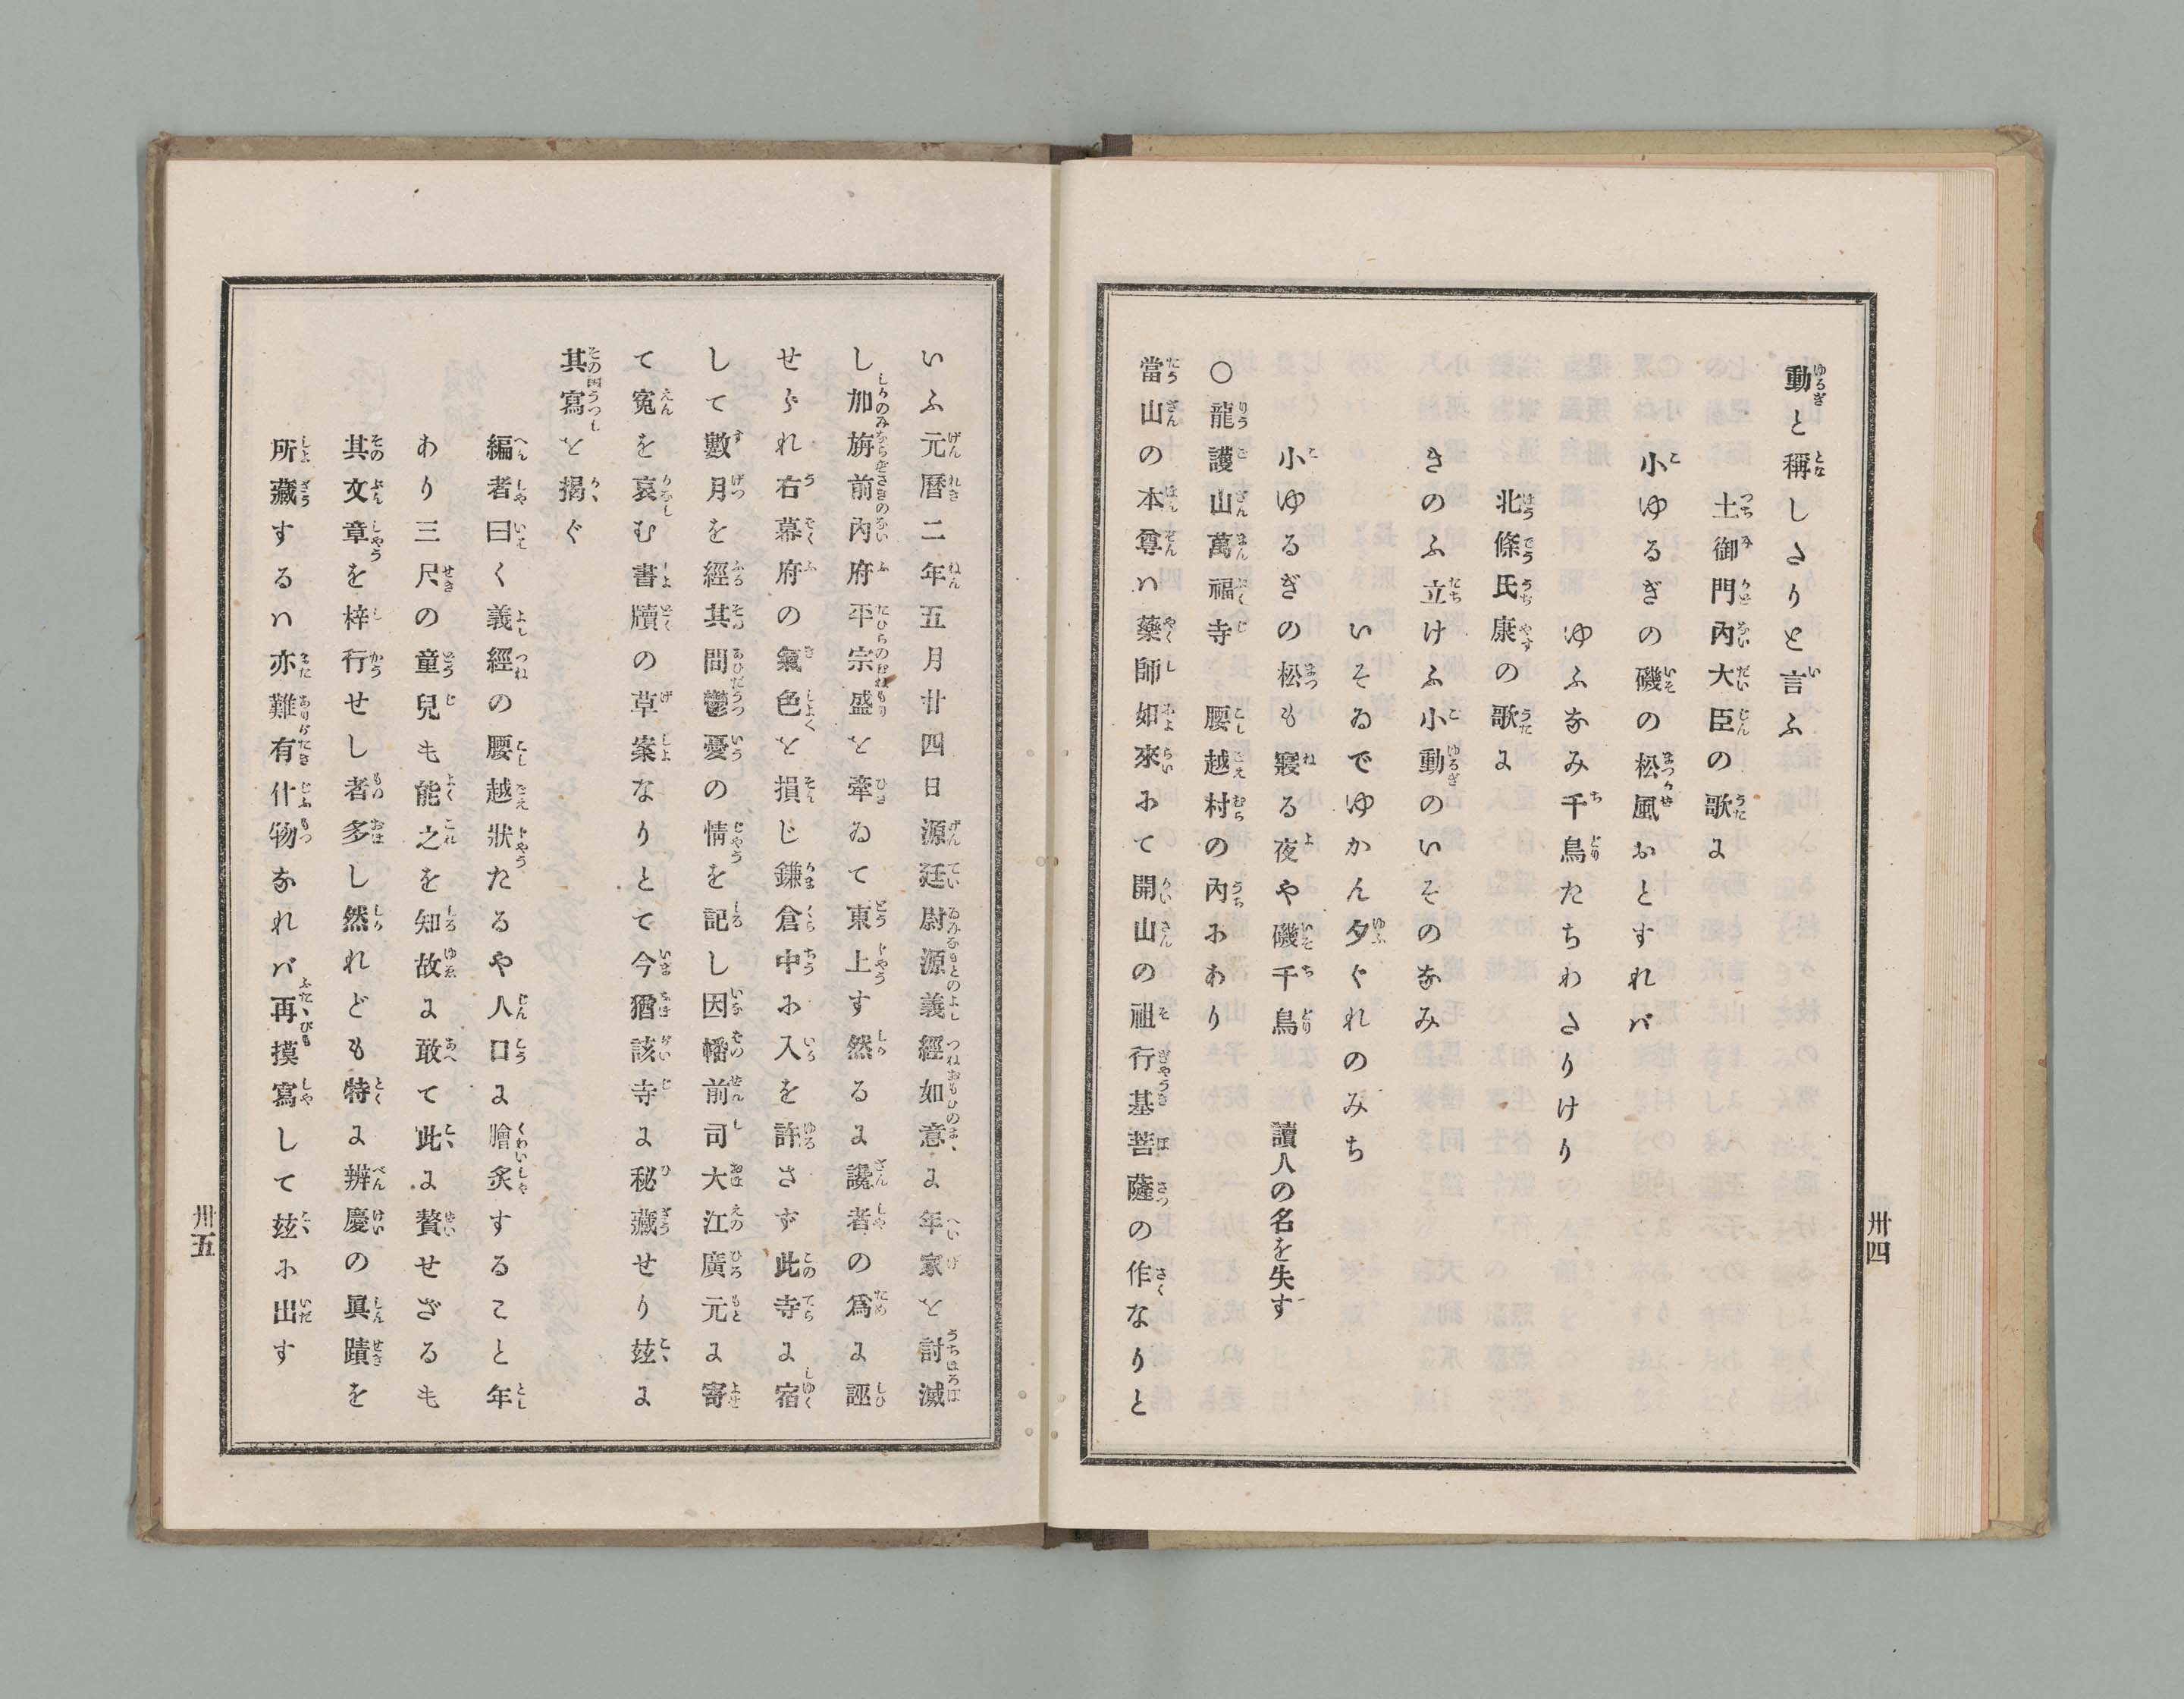 動と稱しさりと言ふ
土御門內大臣の歌に
小ゆるぎの磯の松風おとすれバ
ゆふなみ千鳥たちわさりけり
北條氏康の歌に
きのふ立けふ小動のいそのなみ
いそゐでゆかん夕ぐれのみち
小ゆるぎの松も寢る夜や磯千鳥 讀人の名を失す
○龍護山萬福寺 腰越村の內にあり
當山の本尊ハ藥師如來にて開山の祖行基菩薩の作なりと
卅四
いふ元曆二年五月廿四日源廷尉源義經如意に年家を討滅
し加旃前內府平宗盛を牽ゐて東上す然るに讒者の爲に誣
せられ右幕府の氣色を損じ鎌倉中に入を許さず此寺に宿
して數月を經其間鬱憂の情を記し因幡前司大江廣元に寄
て寃を哀む書牘の草案なりとて今猶該寺に秘藏せり玆に
其寫を揭ぐ
編者曰く義經の腰越狀たるや人口に膾炙すること年
あり三尺の童兒も能之を知故に敢て此に贅せざるも
其文章を梓行せし者多し然れども特に辨慶の眞蹟を
所藏するハ亦難有什物なれバ再摸寫して玆に出す
卅五